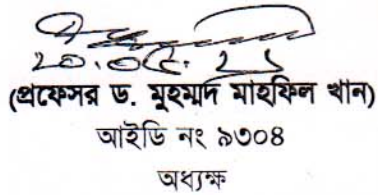 ২০.০৫.২১
(প্রফেসর ড. মুহম্মদ মাহফিল খান)
আইডি নং ৯৩০৪
অধ্যক্ষ